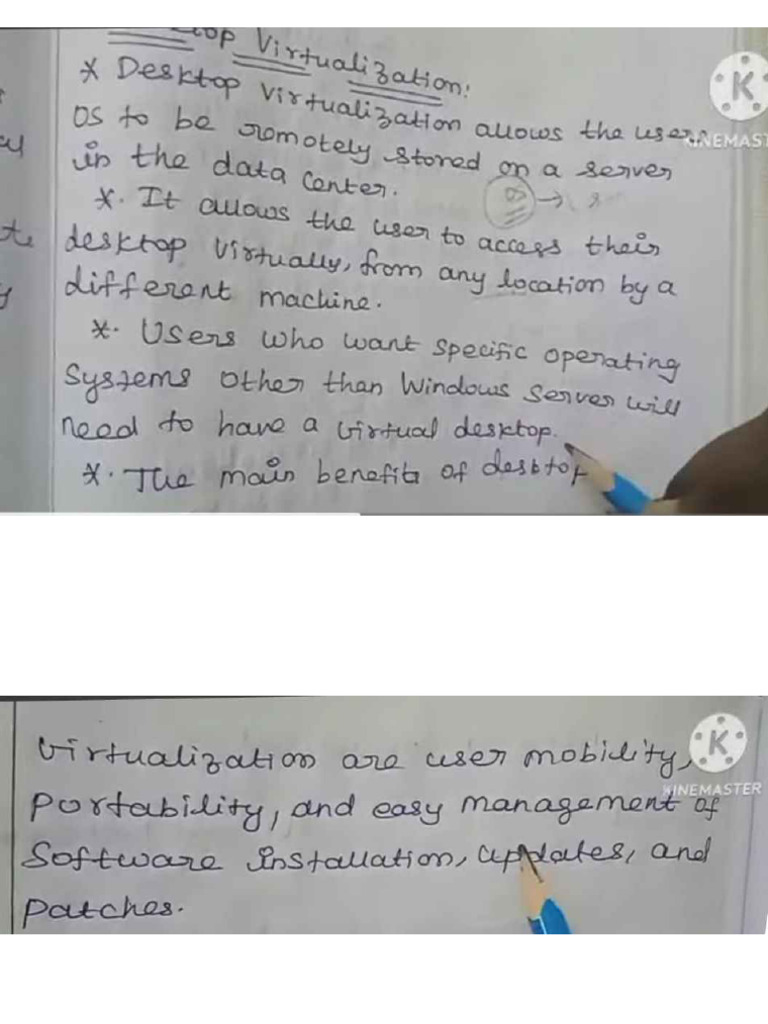 top Virtualization:
* Desktop Virtualization allows the users
OS to be romotely stored on a server
in the data center.
*. It allows the user to access their
desktop virtually, from any location by a
different machine.
*. Users who want specific operating
Systems other than Windows Server will
need to have a virtual desktop.
*. The main benefits of desktop
Virtualization are user mobility,
Portability, and easy management of
Software installation, updates, and
patches.
KINEMAST
KINEMASTER